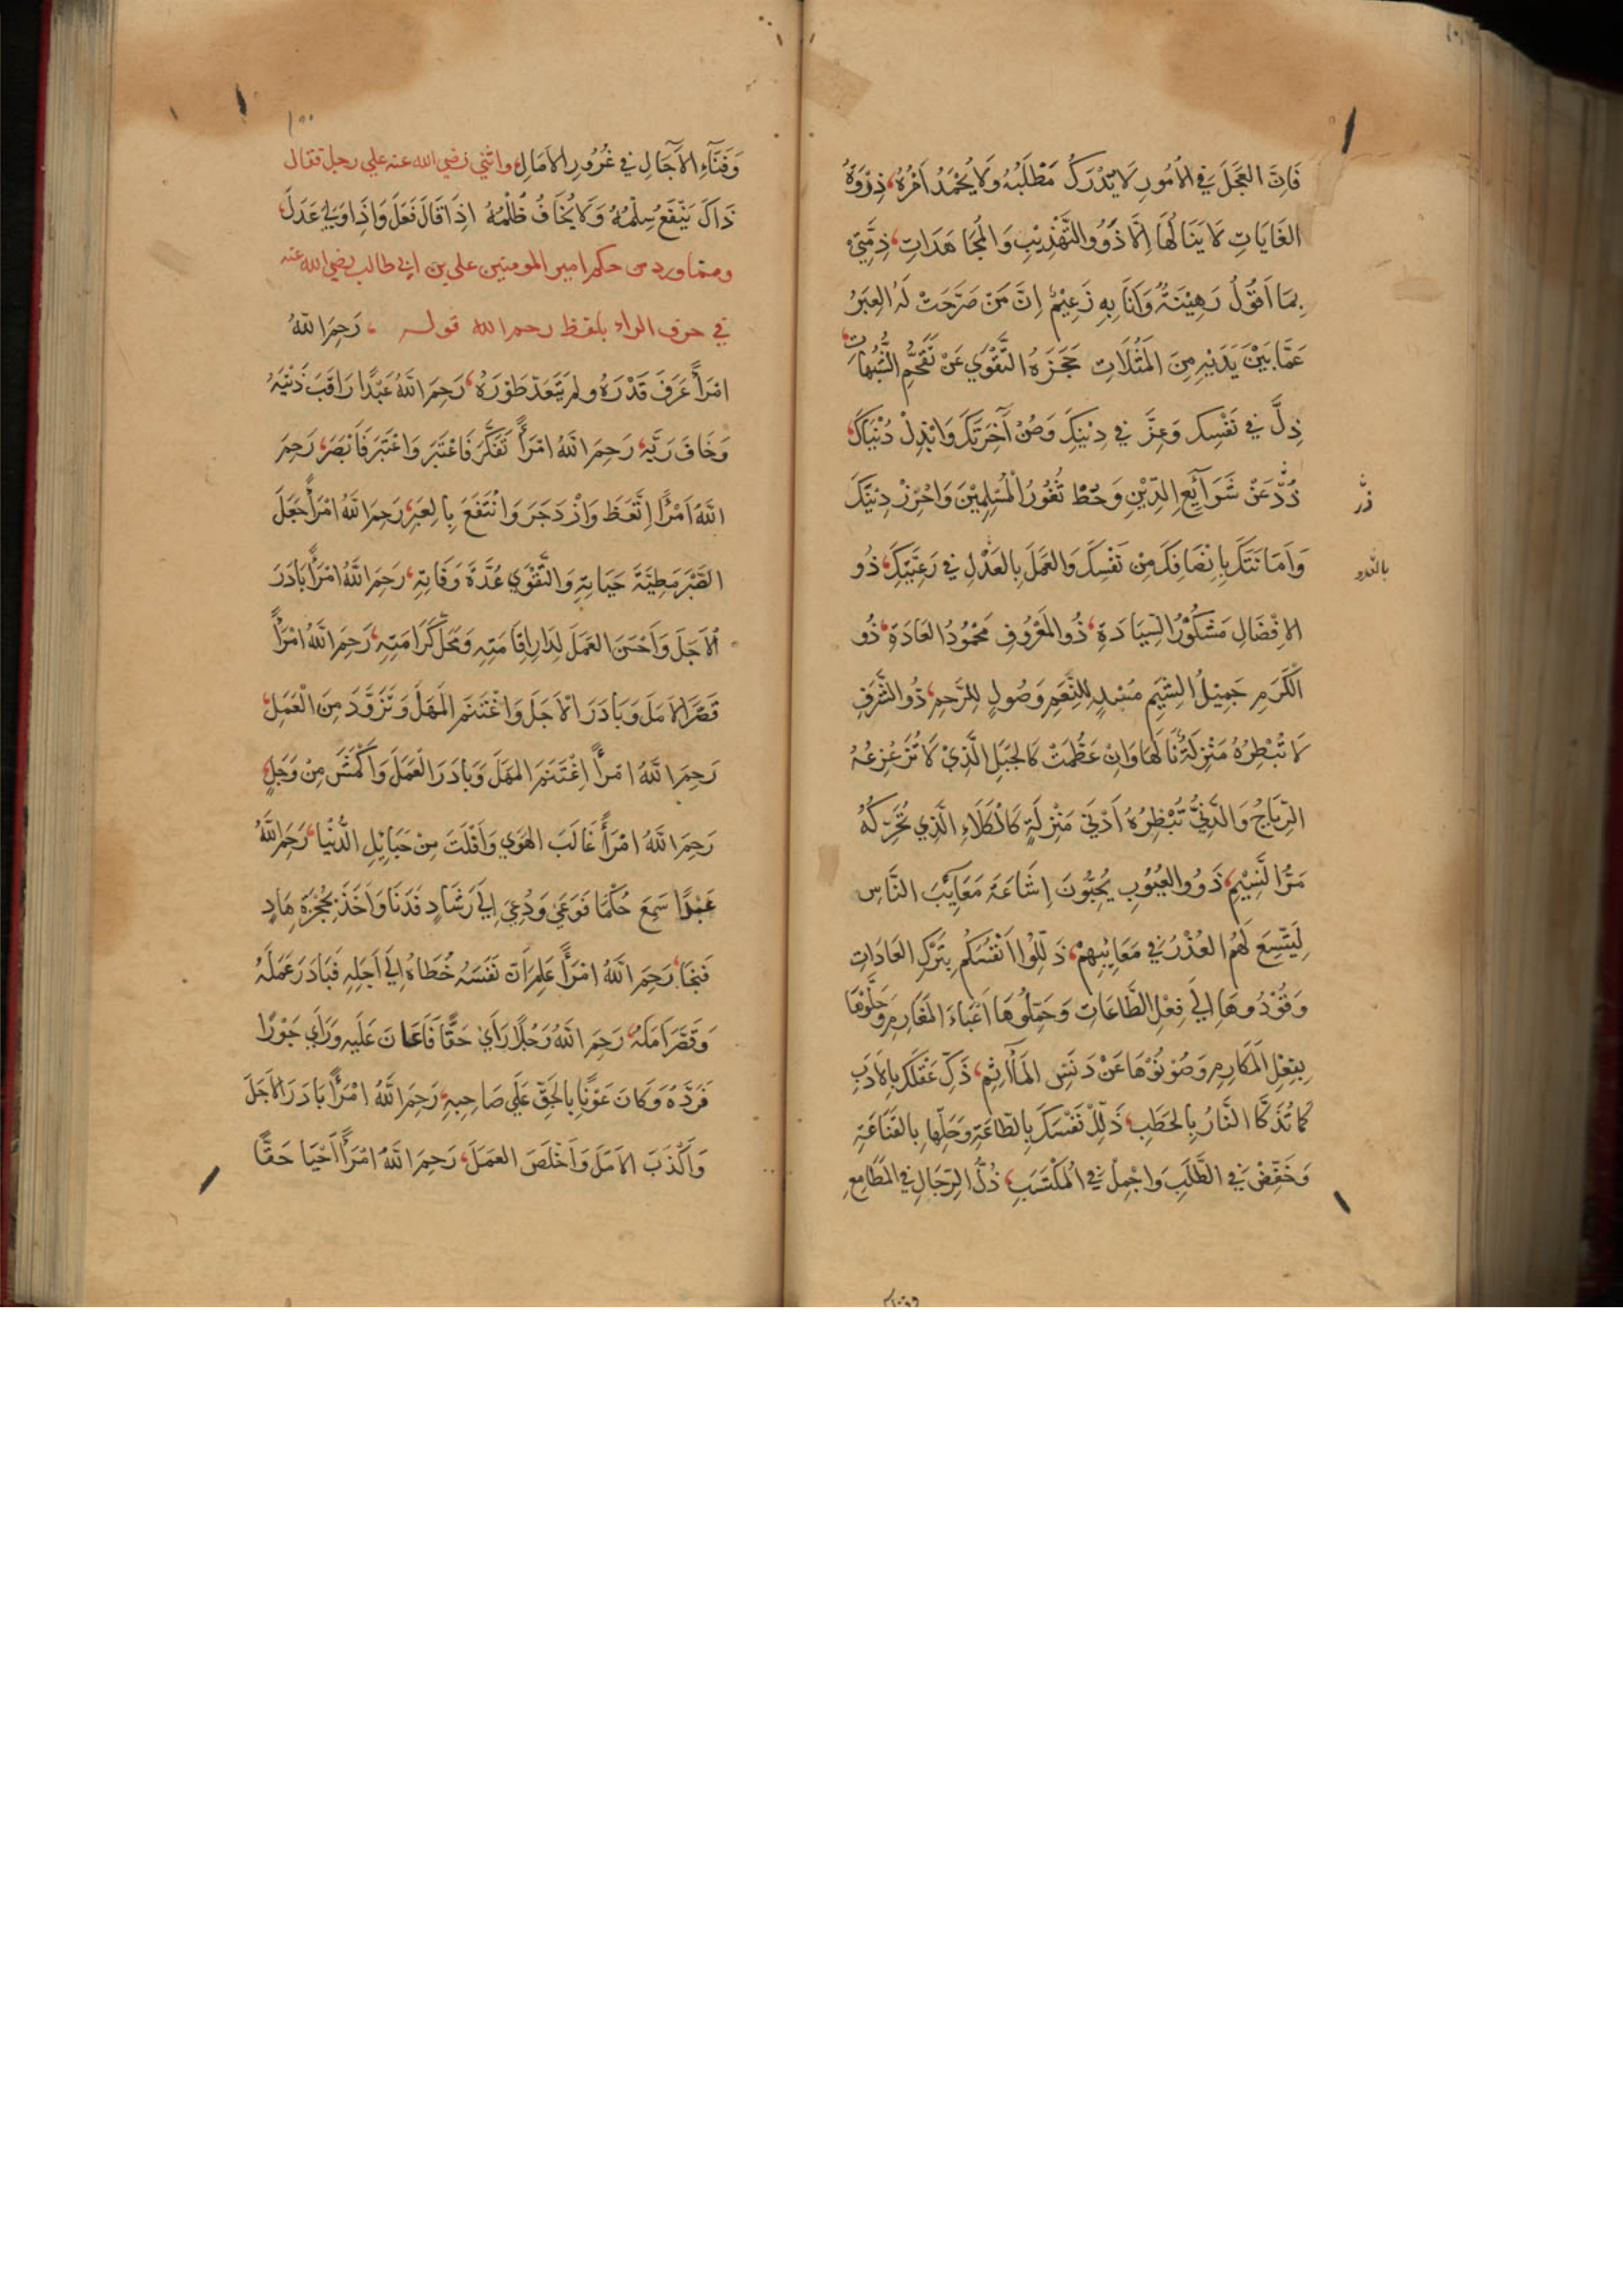 فَاِنَّ العَجَلَ فِي الاُمُورِ لَا يُدْرَكُ مَطْلَبُهُ وَلَا يُحْمَدُ اَمْرُهُ، ذِرْوَةُ
الغَايَاتِ لَا يَنَالُهَا اِلَّا ذَوُو التَّهْذِيْبِ وَالمُجَاهَدَاتِ، ذِمَّتِيْ
بِمَا اَقُوْلُ رَهِيْنَةٌ وَاَنَا بِهِ زَعِيْمٌ اِنَّ مَنْ صَرَّحَتْ لَهُ العِبَرُ
عَمَّا بَيْنَ يَدَيْهِ مِنَ المَثُلَاتِ حَجَزَهُ التَّقْوَي عَنْ تَقَحُّمِ الشُّبُهَاتِ
ذِلَّ فِي نَفْسِكَ وَعِزَّ فِي دِيْنِكَ وَصُنْ آخِرَتَكَ وَابْذِلْ دُنْيَاكَ،
ذُدْ عَنْ شَرَآئِعِ الدِّيْنِ وَحُطْ ثُغُورُ المُسْلِمِيْنَ وَاحْرِزْ دِيْنَكَ
وَاَمَانَتَكَ بِاِنْصَافِكَ مِنْ نَفْسِكَ وَالعَمَلَ بِالعَدْلِ فِي رَعِيَّتِكَ، ذُو
الاِفْضَالِ مَشْكُوْرُ السِّيَادَةِ، ذُو المَعْرُوفِ مَحْمُودُ العَادَةِ، ذُو
الكَرَمِ جَمِيْلُ الشِّيَمِ مُسْدٍ لِلنِّعَمِ وَصُولٍ لِلرَّحِمِ، ذُو الشَّرَفِ
لَا تُبْطِرُهُ مَنْزِلَةٌ نَالَهَا وَاِنْ عَظُمَتْ كَالجَبَلِ الَّذِيْ لَا تُزَعْزِعُهُ
الرِّيَاحُ وَالدَّنِيُّ تُبْطِرُهُ اَدْنَي مَنْزِلَةٍ كَالْكَلَاءِ الَّذِي تُحَرِّكُهُ
مَرُّ النَّسِيْمِ، ذَوُو العُيُوْبِ يُحِبُّونَ اِشَاعَةَ مَعَايِبَ النَّاسِ
لِيَتَّسِعَ لَهُمُ العُذْرُ فِي مَعَايِبِهِمْ، ذَلِّلُوا اَنْفُسَكُمْ بِتَرْكِ العَادَاتِ
وَقُوْدُوهَا اِلَي فِعْلِ الطَّاعَاتِ وَحَمِّلُوهَا اَعْبَاءَ المَغَارِمِ وَحَلُّوْهَا
بِفِعْلِ المَكَارِمِ وَصُوْنُوْهَا عَنْ دَنَسِ المَآثِمِ، ذَكِّ عَقْلَكَ بِالاَدَبِ
كَمَا تُذَكَّا النَّارُ بِالحَطَبِ، ذَلِّلْ نَفْسَكَ بِالطَّاعَةِ وَحَلِّهَا بِالقَنَاعَةِ
وَخَفِّضْ فِي الطَّلَبِ وَاجْمِلْ فِي المُكْتَسَبِ، ذُلُّ الرِّجَالِ فِي المَطَامِعِ
١٠٠
وَفَنَآءِ الآجَالِ فِي غُرُورِ الاَمَالِ، واثني رضي الله عنه علي رجل فقال
ذَاكَ يَنْفَعُ سِلْمُهُ وَلَا يُخَافُ ظُلْمُهُ اِذَا قَالَ فَعَلَ وَاِذَا وَلِيَ عَدَلَ،
ومما ورد من حكم امير المومنين علي بن ابي طالب رضي الله عنه
في حرف الراء بلفظ رحم الله قوله ، رَحِمَ اللّٰهُ
امْرَأً عَرَفَ قَدْرَهُ ولم يَتَعَدَّ طَوْرَهُ، رَحِمَ اللّٰهُ عَبْدًا رَاقَبَ ذَنْبَهُ
وَخَافَ رَبَّهُ، رَحِمَ اللّٰهُ امْرَأً تَفَكَّرَ فَاعْتَبَرَ وَاعْتَبَرَ فَاَبْصَرَ، رَحِمَ
اللّٰهُ امْرًأ اِتَّعَظَ وَازْدَجَرَ وَانْتَفَعَ بِالعِبَرِ، رَحِمَ اللّٰهُ امْرَأً جَعَلَ
الصَّبْرَ مَطِيَّةَ حَيَاتِهِ وَالتَّقْوَي عُدَّةَ وَفَاتِهِ، رَحِمَ اللّٰهُ امْرَأً بَادَرَ
الاَجَلَ وَاَحْسَنَ العَمَلَ لِدَارِ اِقَامَتِهِ وَمَحَلِّ كَرَامَتِهِ، رَحِمَ اللّٰهُ امْرَأً
قَصَّرَ الاَمَلَ وَبَادَرَ الاَجَلَ وَاغْتَنَمَ المَهَلَ وَتَزَوَّدَ مِنَ الْعَمَلِ،
رَحِمَ اللّٰهُ امْرَأً اِغْتَنَمَ المَهَلَ وَبَادَرَ العَمَلَ وَاَكْمَشَ مِنْ وَجَلٍ،
رَحِمَ اللّٰهُ امْرَأً غَالَبَ الهَوَي وَاَفْلَتَ مِنْ حَبَائِلِ الدُّنْيَا، رَحِمَ اللّٰهُ
عَبْدًا سَمِعَ حُكْمًا فَوَعَيٰ وَدُعِيَ اِلَي رَشَادٍ فَدَنَا وَاَخَذَ بِحُجْزَةِ هَادٍ
فَنَجَا، رَحِمَ اللّٰهُ امْرَأً عَلِمَ اَنَّ نَفَسَهُ خُطَاهُ اِلَي اَجَلِهِ فَبَادَرَ عَمَلَهُ
وَقَصَّرَ اَمَلَهُ، رَحِمَ اللّٰهُ رَجُلًا رَاَيٰ حَقًّا فَاَعَانَ عَلَيهِ وَرَاَي جَوْرًا
فَرَدَّهُ وَكَانَ عَوْنًا بِالحَقِّ عَلَي صَاحِبِهِ، رَحِمَ اللّٰهُ امْرَأً بَادَرَ الاَجَلَ
وَاَكْذَبَ الاَمَلَ وَاَخْلَصَ العَمَلَ، رَحِمَ اللّٰهُ امْرَأً اَحْيَا حَقًّا